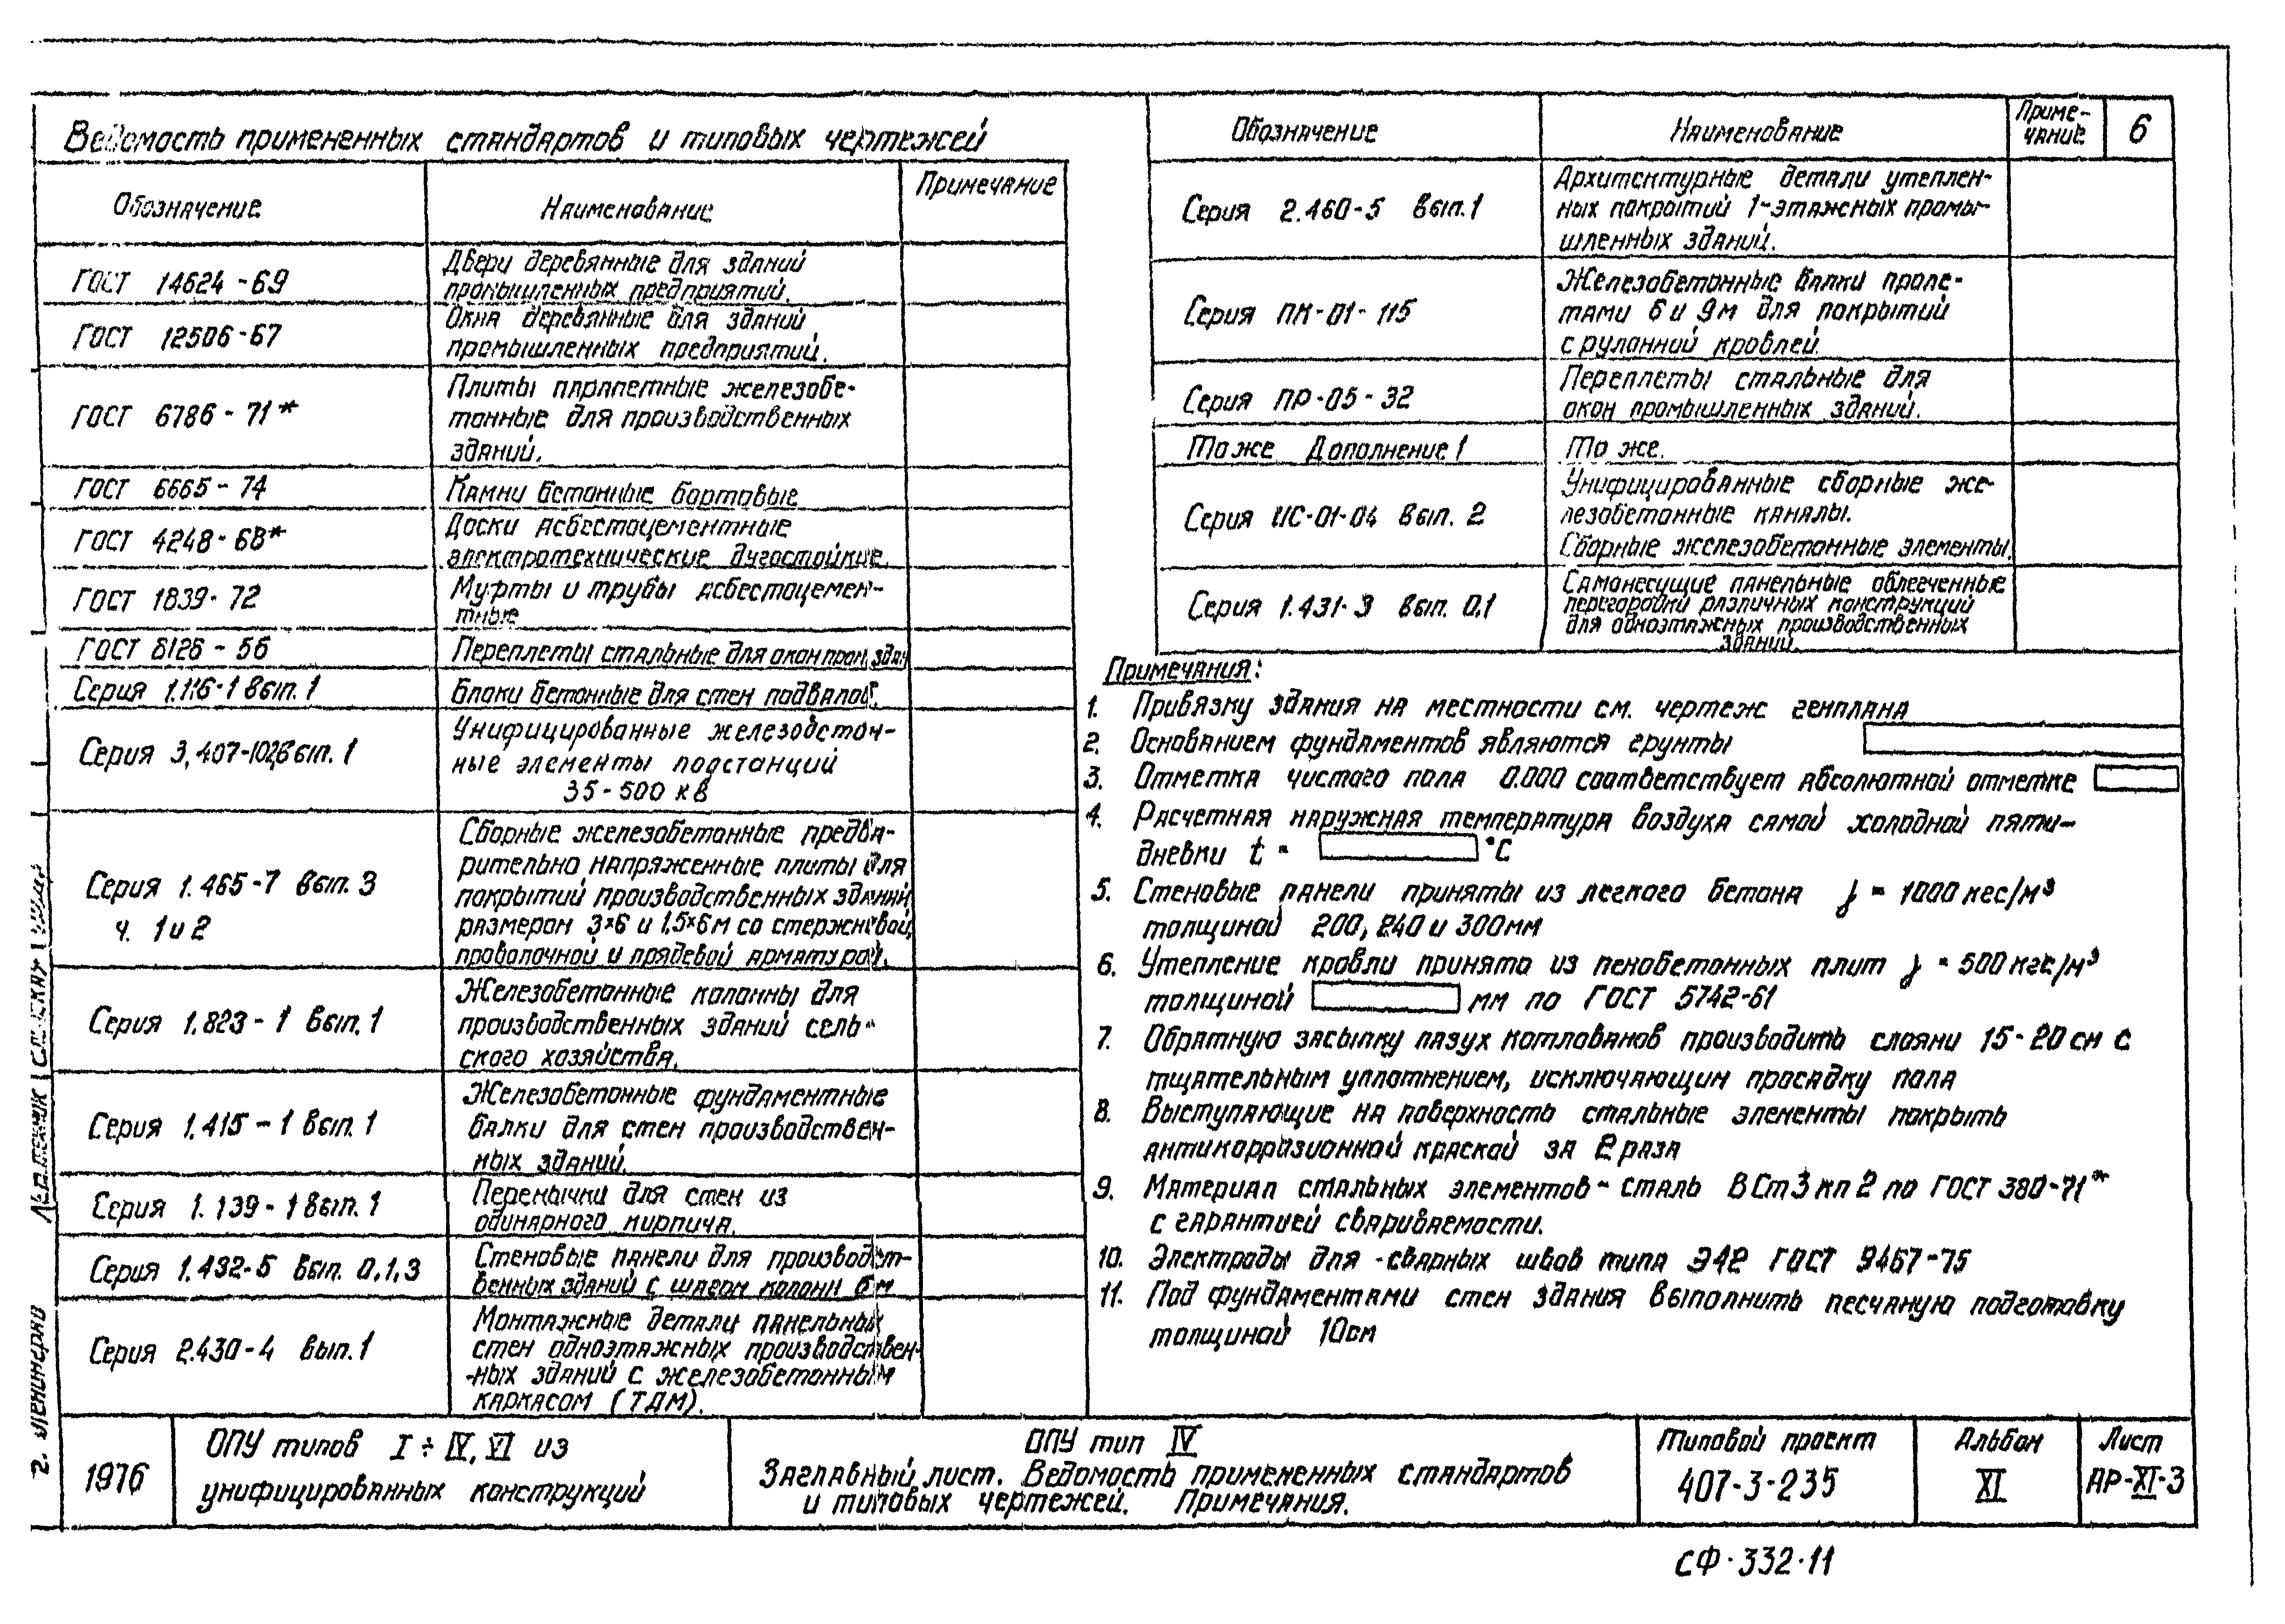 Ведомость примененных стандартов и типовых чертежей
Обозначение
Наименование
Примечание
ГОСТ 14624-69
Двери деревянные для зданий
промышленных предприятий.
ГОСТ 12506-67
Окна деревянные для зданий
промышленных предприятий.
ГОСТ 6786-71*
Плиты парапетные железобе-
тонные для производственных
зданий.
ГОСТ 6665-74
Камни бетонные бортовые
ГОСТ 4248-68*
Доски асбестоцементные
электротехнические дугостойкие.
ГОСТ 1839-72
Муфты и трубы асбестоцемен-
тные
ГОСТ 8126-56
Переплеты стальные для окон пром. здан
Серия 1.116-1 вып. 1
Блоки бетонные для стен подвалов.
Серия 3.407-102 вып. 1
Унифицированные железобетон-
ные элементы подстанций
35-500 кв
Серия 1.465-7 вып. 3
ч. 1 и 2
Сборные железобетонные предва-
рительно напряженные плиты для
покрытий производственных зданий
размером 3×6 и 1.5×6 м со стержневой,
проволочной и прядевой арматурой.
Серия 1.823-1 вып. 1
Железобетонные колонны для
производственных зданий сель-
ского хозяйства.
Серия 1.415-1 вып. 1
Железобетонные фундаментные
балки для стен производствен-
ных зданий.
Серия 1.139-1 вып. 1
Перемычки для стен из
одинарного кирпича.
Серия 1.432-5 вып. 0,1,3
Стеновые панели для производст-
венных зданий с шагом колонн 6 м
Серия 2.430-4 вып. 1
Монтажные детали панельных
стен одноэтажных производствен-
-ных зданий с железобетонным
каркасом (ТДМ).
Обозначение
Наименование
Приме-
чание
6
Серия 2.460-5 вып. 1
Архитектурные детали утеплен-
ных покрытий 1-этажных промы-
шленных зданий.
Серия ПК-01-115
Железобетонные балки проле-
тами 6 и 9 м для покрытий
с рулонной кровлей.
Серия ПР-05-32
Переплеты стальные для
окон промышленных зданий.
То же Дополнение 1
То же.
Серия ИС-01-04 вып. 2
Унифицированные сборные же-
лезобетонные каналы.
Сборные железобетонные элементы.
Серия 1.431-3 вып. 0,1
Самонесущие панельные облегченные
перегородки различных конструкций
для одноэтажных производственных
зданий.
Примечания:
1. Привязку здания на местности см. чертеж генплана
2. Основанием фундаментов являются грунты
3. Отметка чистого пола 0.000 соответствует абсолютной отметке
4. Расчетная наружная температура воздуха самой холодной пяти-
дневки t = °С
5. Стеновые панели приняты из легкого бетона γ = 1000 кгс/м³
толщиной 200, 240 и 300 мм
6. Утепление кровли принято из пенобетонных плит γ = 500 кгс/м³
толщиной мм по ГОСТ 5742-61
7. Обратную засыпку пазух котлованов производить слоями 15-20 см с
тщательным уплотнением, исключающим просадку пола
8. Выступающие на поверхность стальные элементы покрыть
антикоррозионной краской за 2 раза
9. Материал стальных элементов - сталь ВСт3кп2 по ГОСТ 380-71*
с гарантией свариваемости.
10. Электроды для сварных швов типа Э42 ГОСТ 9467-75
11. Под фундаментами стен здания выполнить песчаную подготовку
толщиной 10 см
1976
ОПУ типов I ÷ IV, VI из
унифицированных конструкций
ОПУ тип IV
Заглавный лист. Ведомость примененных стандартов
и типовых чертежей. Примечания.
Типовой проект
407-3-235
Альбом
XI
Лист
АР-XI-3
СФ-332-11
г. Ленинград